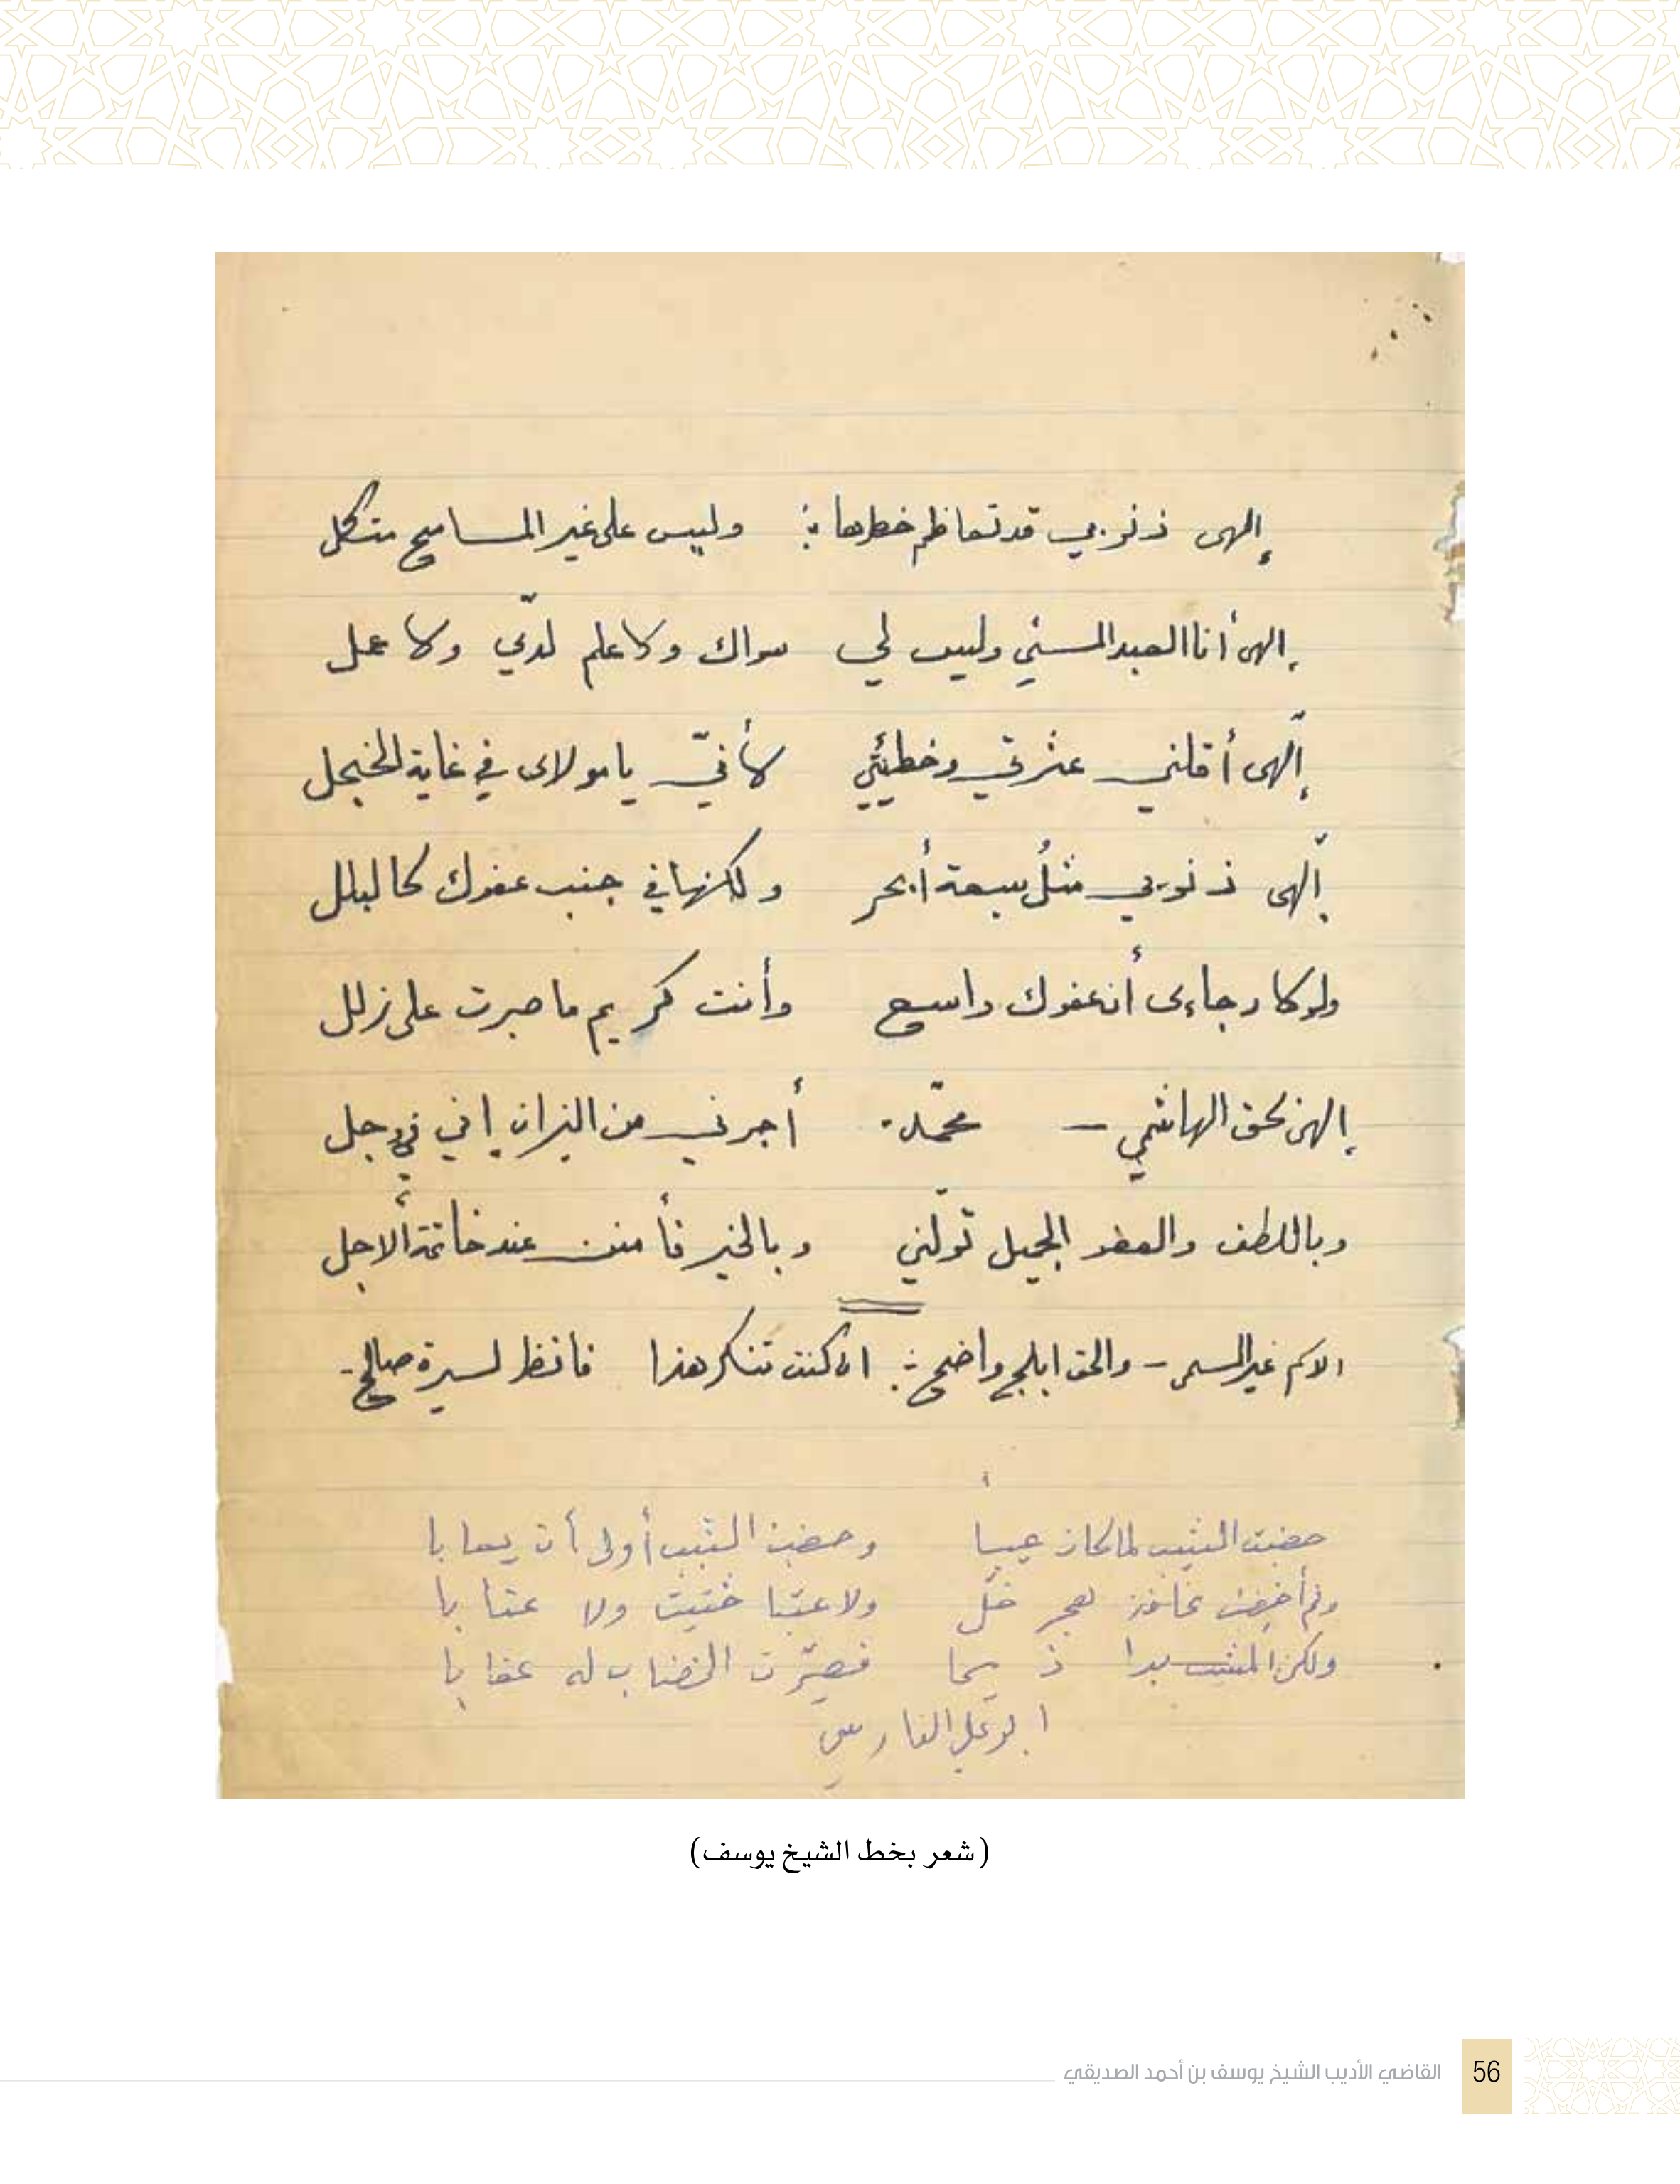 إلهى ذنوبي قد تعاظم خطرها ؛ وليس على غير المسامح متكل
إلهى أنا العبد المسئي وليس لي سواك ولا علم لديّ ولا عمل
إلهى أقلني عثرتي وخطيئتي لأنيّ يا مولاى في غاية الخجل
إلهى ذنوبي مثلُ سبعة أبحر ولكنها في جنب عفوك كالبلل
ولولا رجاءى أن عفوك واسع وأنت كريم ما صبرت على زلل
إلهى بحق الهاشمي – محمّد. أجرني من النيران إني في وجل
وباللطف والعفو الجميل تولّني وبالخير فأمنن عند خاتمة الأجل
الاسم غير المسمى – والحق ابلج واضح ؛ ان كنت تنكر هذا فانظر لسيرة صالح.
خضبت الشيب لما كان عيباً وخضب الشيب أولى أن يعابا
ولم أخضب مخافة هجر خلّ ولا عتبا خشيت ولا عتابا
ولكن المشيب بدا ذميما فصيّرت الخضاب له عقابا
ابو علي الفارسي
(شعر بخط الشيخ يوسف)
القاضي الأديب الشيخ يوسف بن أحمد الصديقي
56